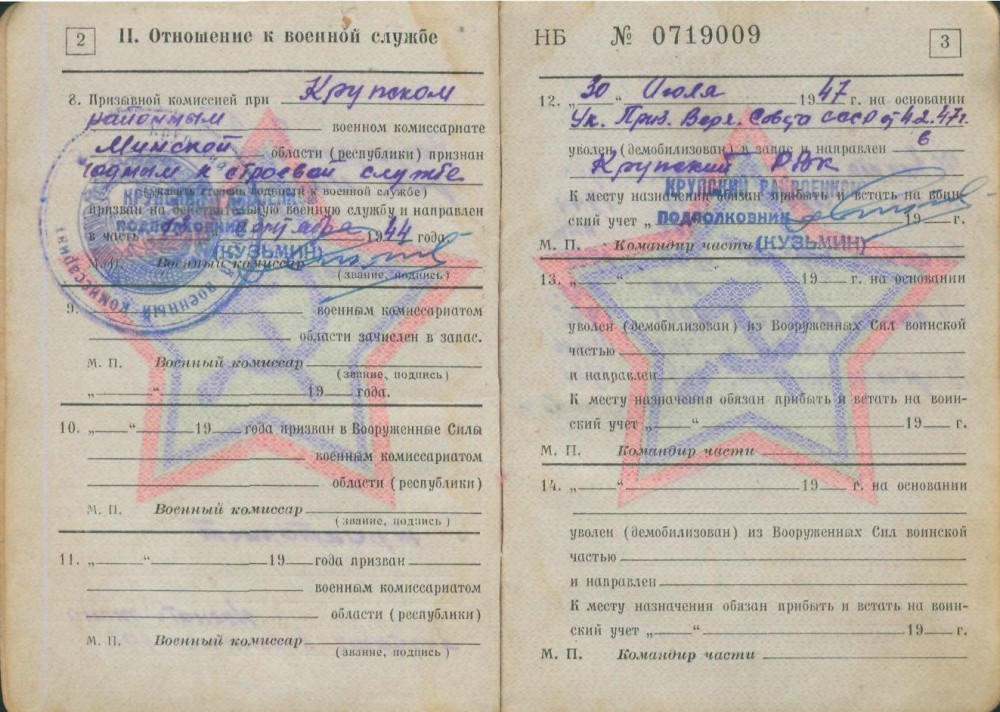 2
II. Отношение к военной службе
8. Призывной комиссией при Крупском
районным военном комиссариате
Минской области (республики) признан
годным к строевой службе
(указать степень годности к военной службе)
призван на действительную военную службу и направлен
в часть „ “ октября 1944 года
М. П. Военный комиссар
(звание, подпись)
КРУПСКИЙ
ПОДПОЛКОВНИК
(КУЗЬМИН)
ВОЕННЫЙ КОМИССАРИАТ
9. военным комиссариатом
области зачислен в запас.
М. П. Военный комиссар
(звание, подпись)
„ “ 19 года.
10. „ “ 19 года призван в Вооруженные Силы
военным комиссариатом
области (республики)
М. П. Военный комиссар
(звание, подпись)
11. „ “ 19 года призван
военным комиссариатом
области (республики)
М. П. Военный комиссар
(звание, подпись)
НБ № 0719009
3
12. „30“ Июля 1947 г. на основании
Ук. През. Верх. Совета СССР от 4.2.47г.
уволен (демобилизован) в запас и направлен в
Крупский РВК
К месту назначения обязан прибыть и встать на воин-
ский учет „ “ 19 г.
М. П. Командир части
КРУПСКИЙ РАЙВОЕНКОМ
ПОДПОЛКОВНИК
(КУЗЬМИН)
13. „ “ 19 г. на основании
уволен (демобилизован) из Вооруженных Сил воинской
частью
и направлен
К месту назначения обязан прибыть и встать на воин-
ский учет „ “ 19 г.
М. П. Командир части
14. „ “ 19 г. на основании
уволен (демобилизован) из Вооруженных Сил воинской
частью
и направлен
К месту назначения обязан прибыть и встать на воин-
ский учет „ “ 19 г.
М. П. Командир части